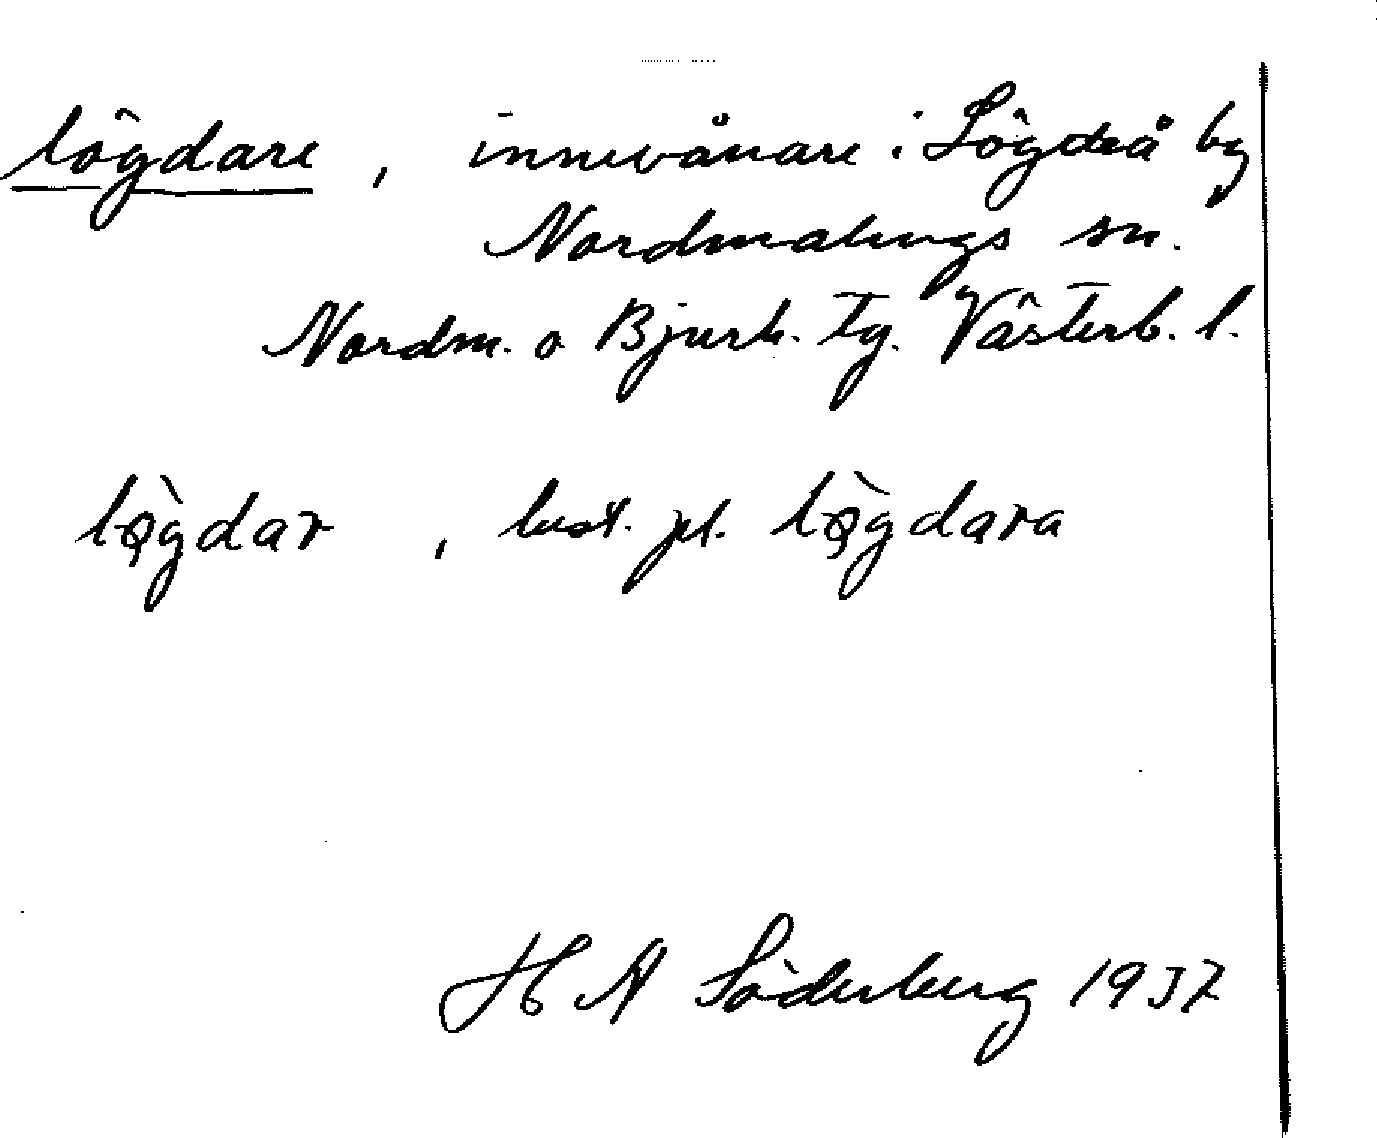 lögdare, innevånare i Lögdeå by
Nordmalings sn.
Nordm. o Bjurh. Tg. Västerb. l.
lǫ̀gdar, best. pl. lǫ̀gdara
H A Söderberg 1937